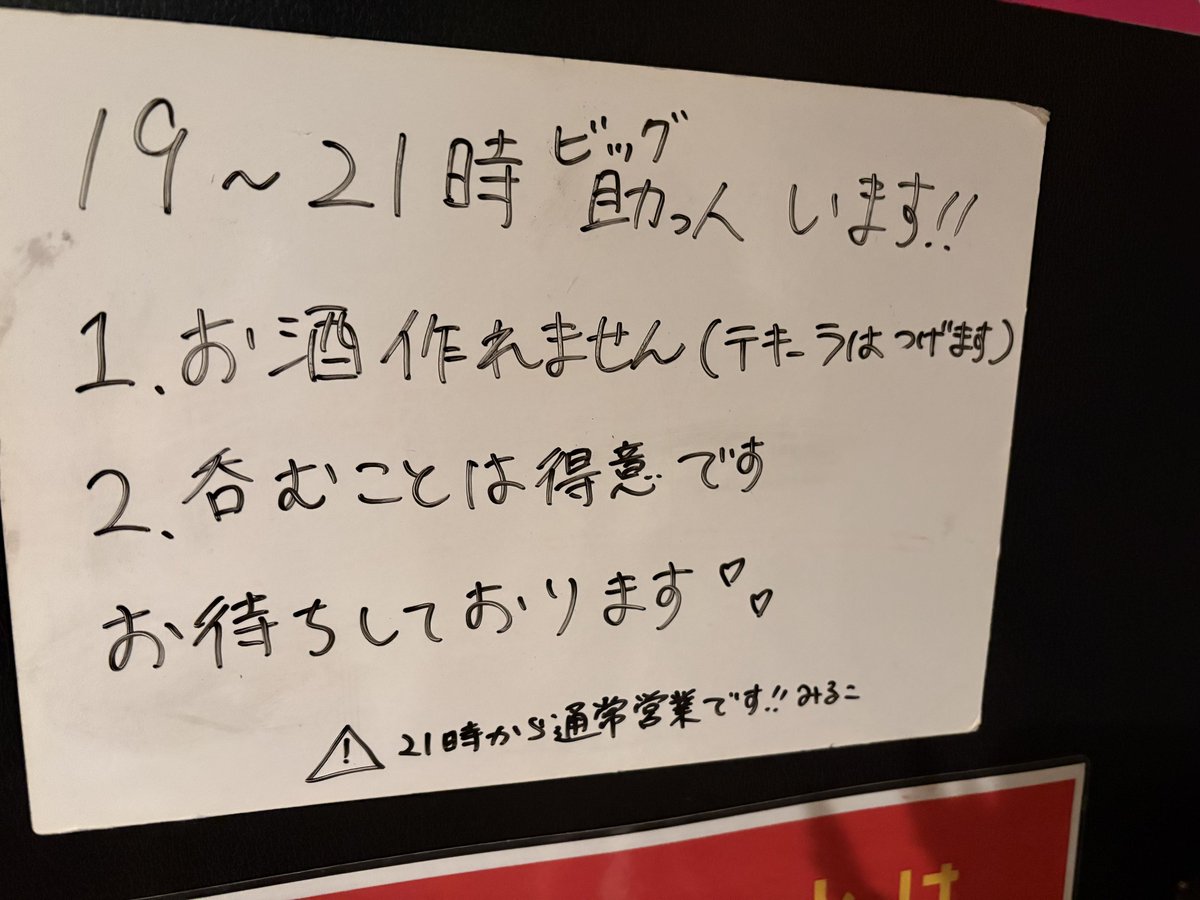 19～21時 ビッグ助っ人 います!!
1. お酒作れません(テキーラはつげます)
2. 呑むことは得意です
お待ちしております♡♡
⚠ 21時から通常営業です!! みるこ